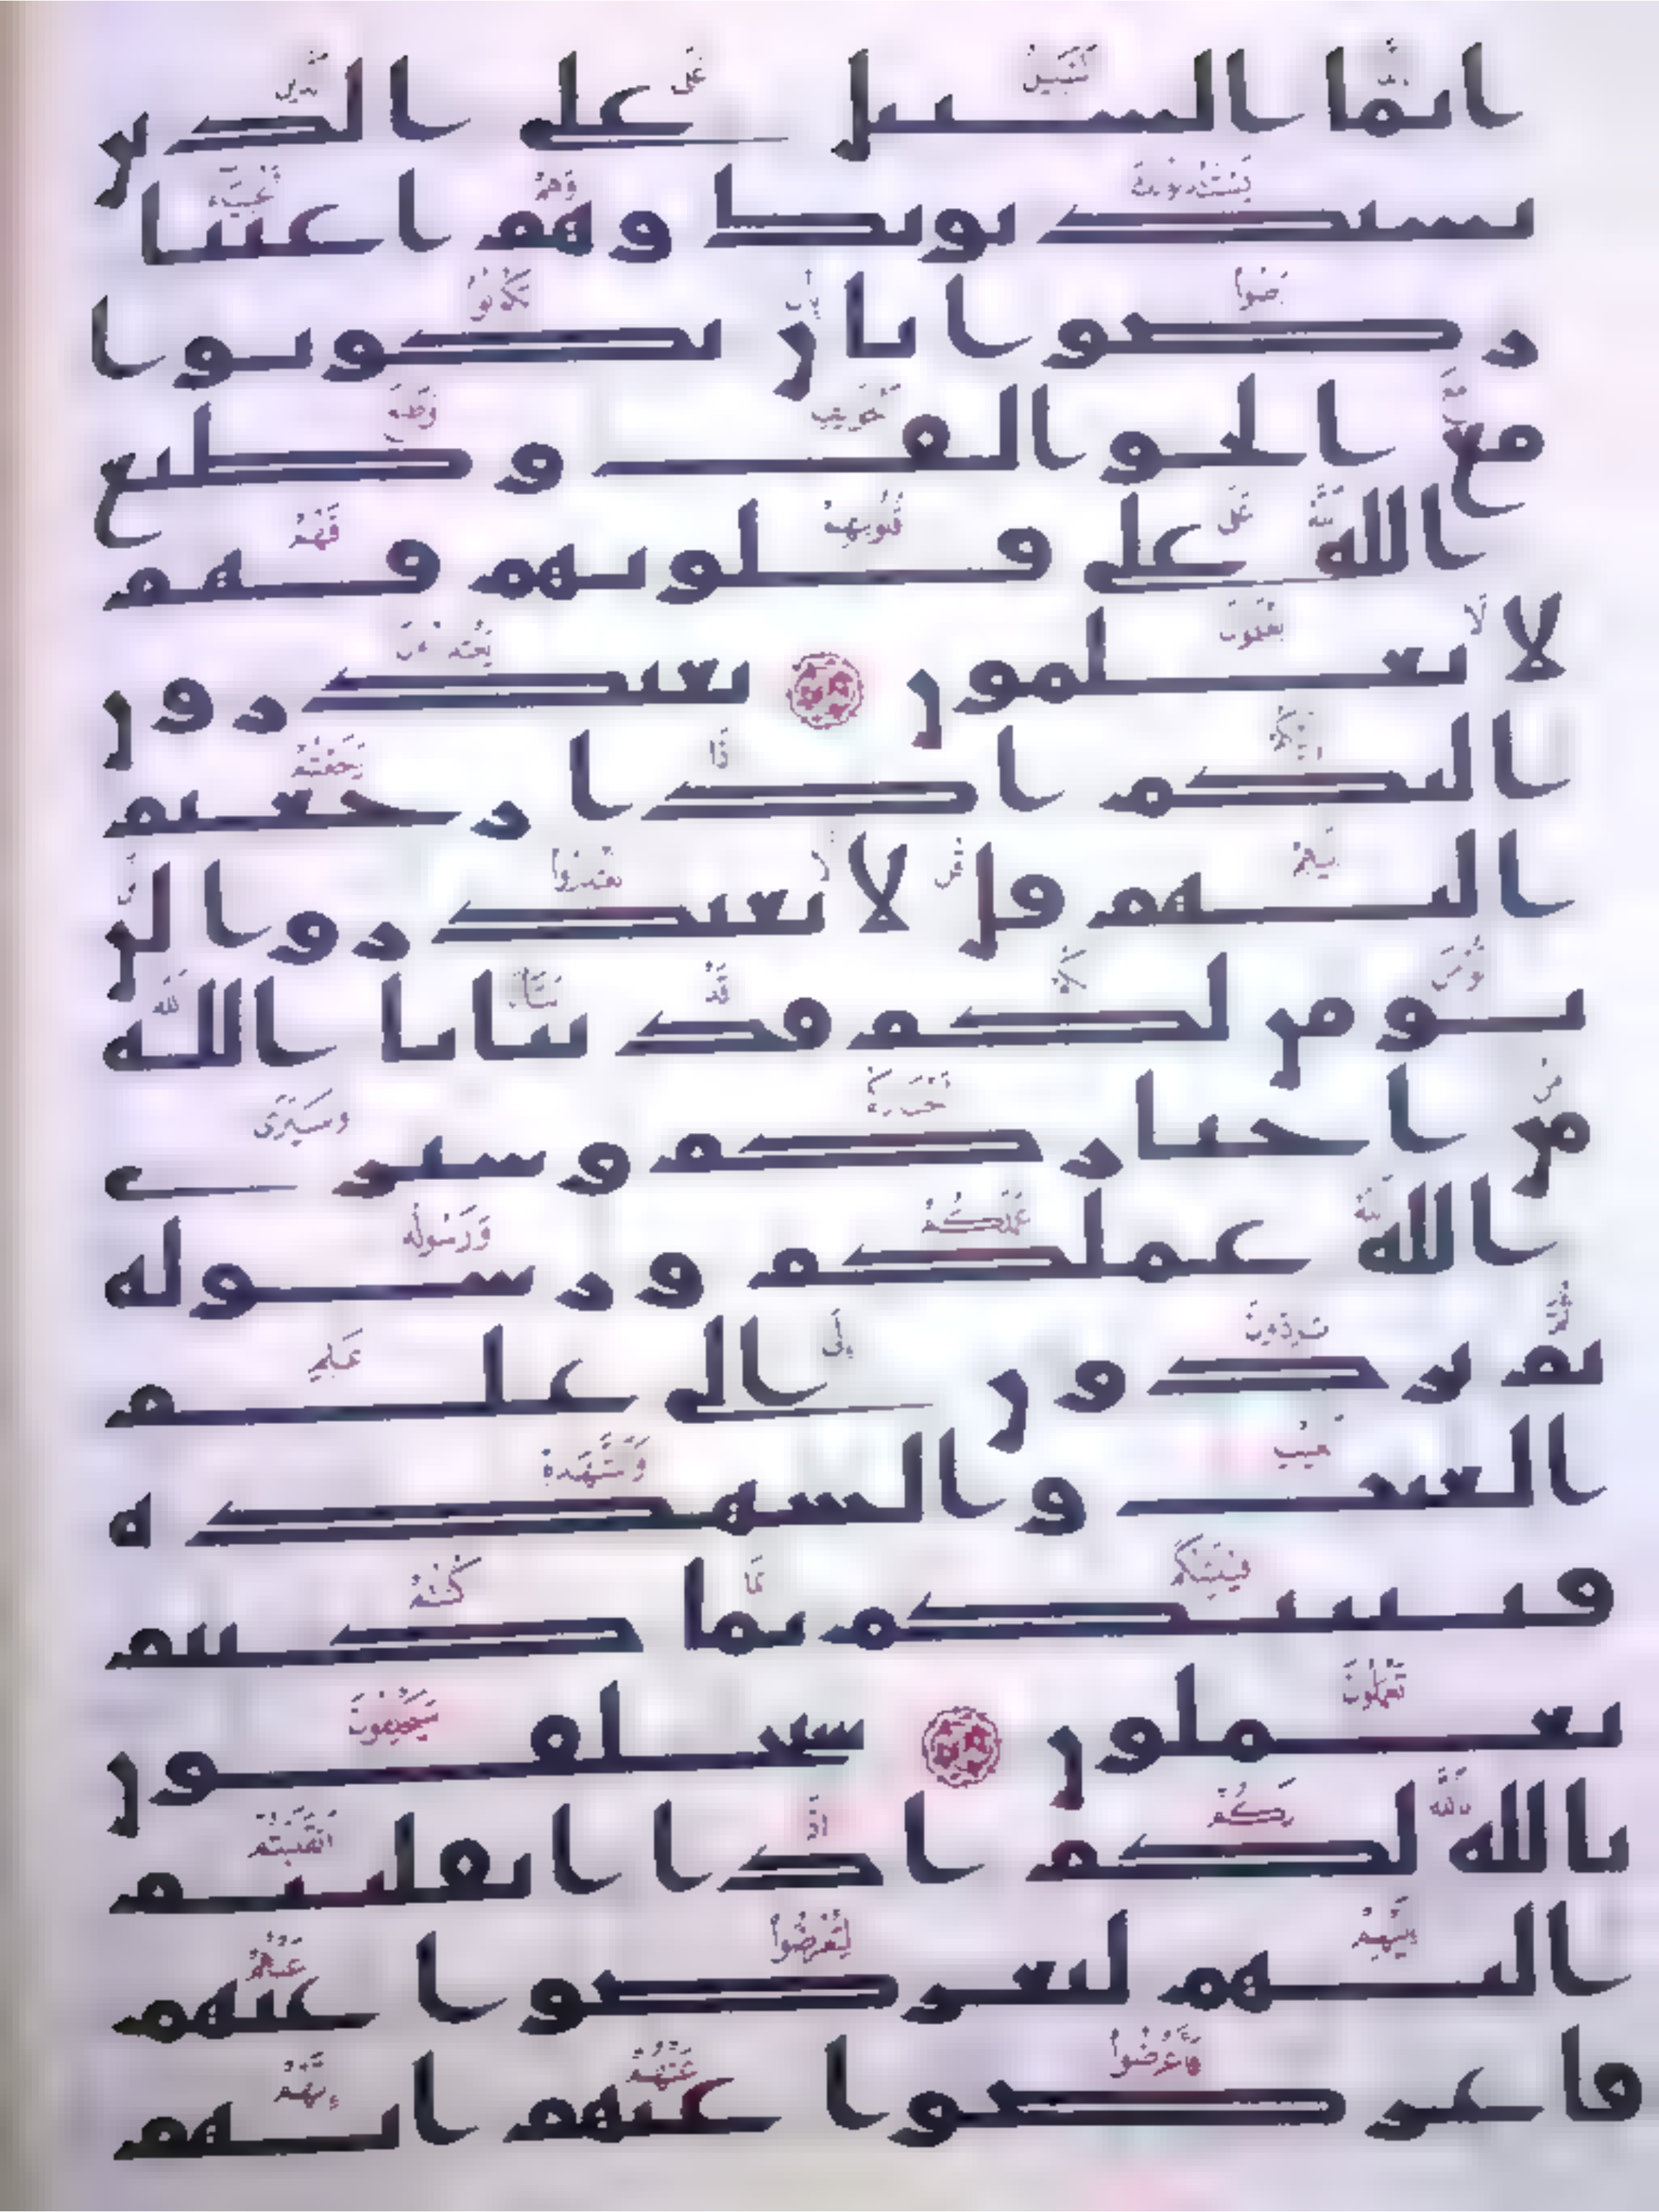 انما السبيل على الذين
يستذنونك وهم اغنيا
رضوا بان يكونوا
مع الخوالف وطبع
الله على قلوبهم فهم
لا يعلمون يعتذرون
اليكم اذا رجعتم
اليهم قل لا تعتذروا لن
نومن لكم قد نبانا الله
من اخباركم وسيرى
الله عملكم ورسوله
ثم تردون الى علم
الغيب والشهدة
فينبيكم بما كنتم
تعملون سيحلفون
بالله لكم اذا انقلبتم
اليهم لتعرضوا عنهم
فاعرضوا عنهم انهم